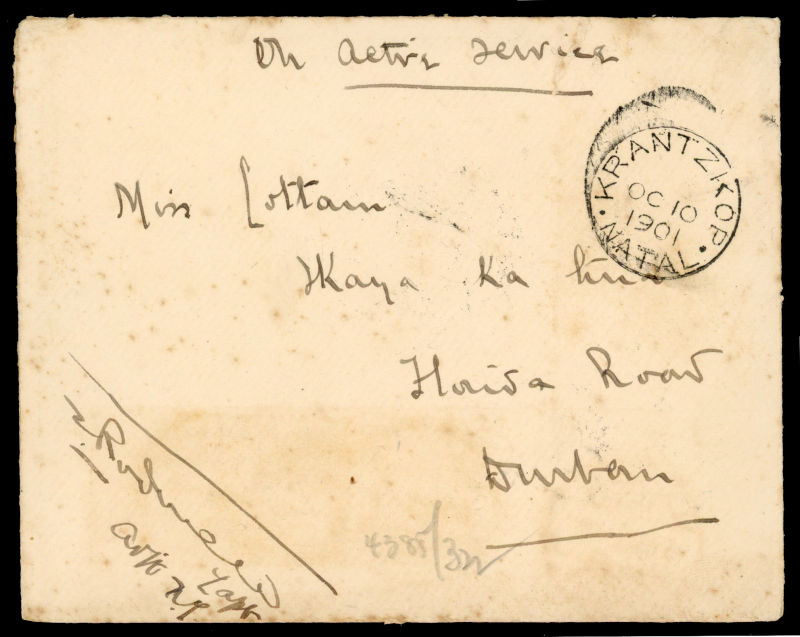 On Active Service
KRANTZKOP
OC 10
1901
NATAL
Miss Cottam
Ikaya Ka
Florida Road
Durban
Capt